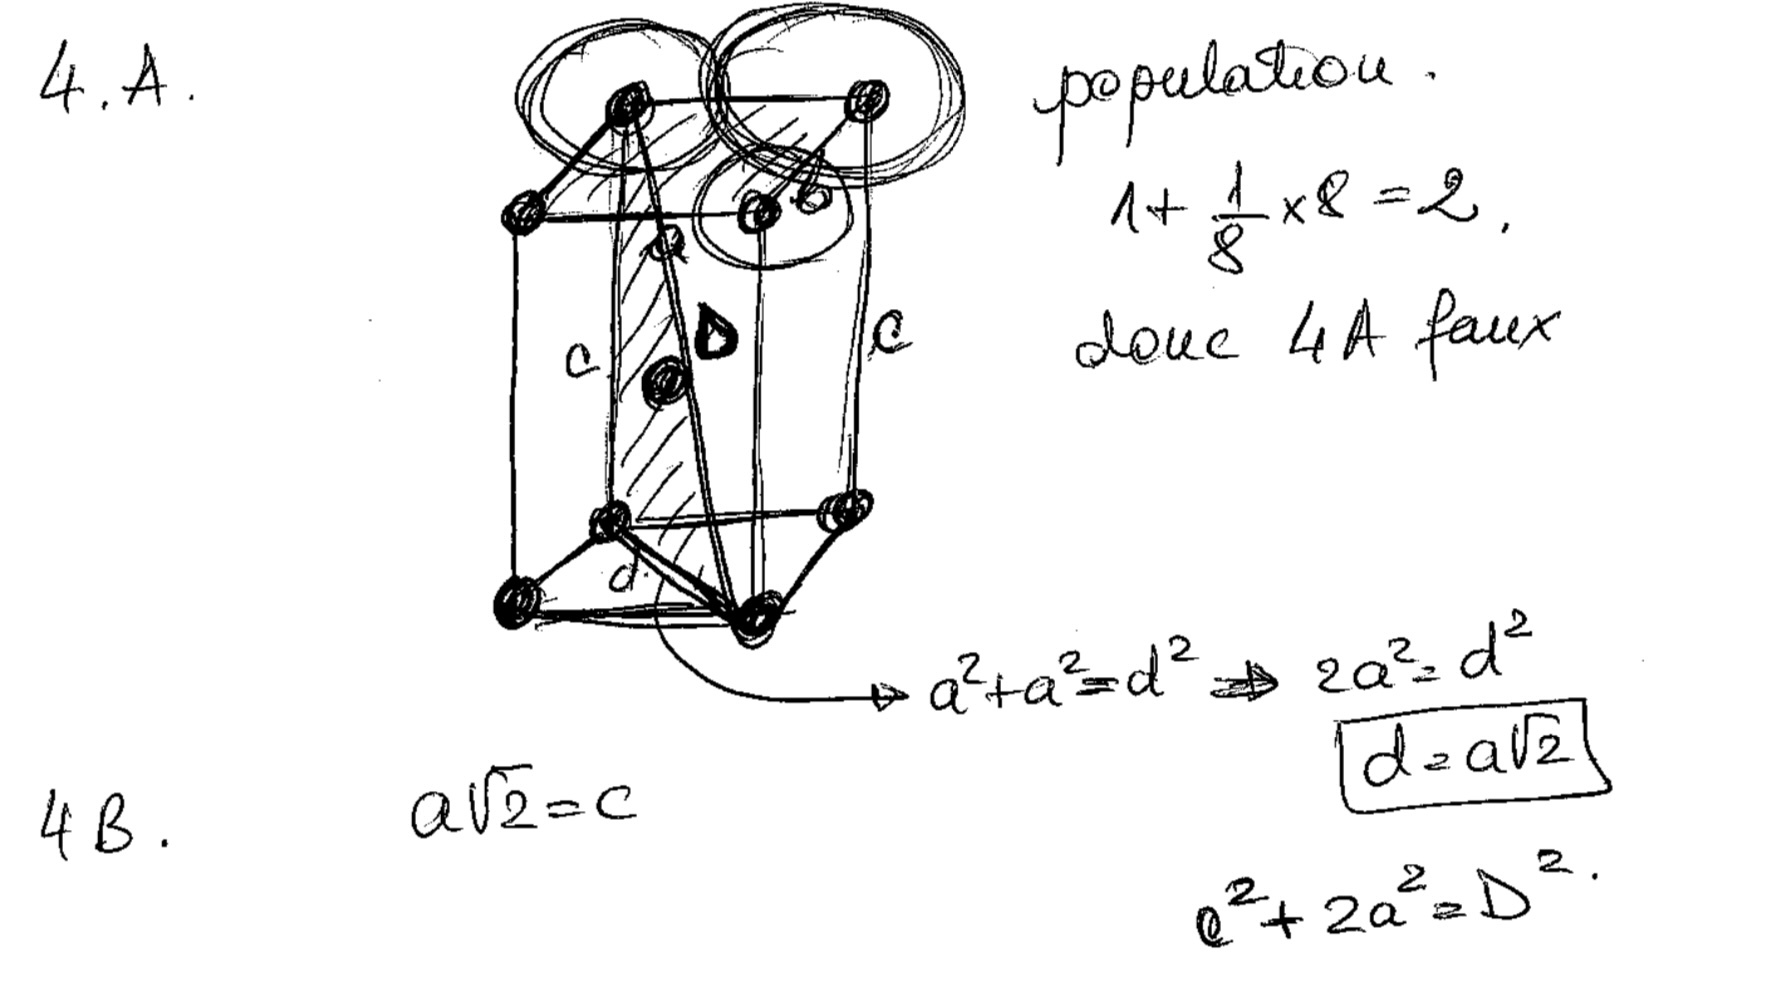 4.A.
population.
1 + 1/8 × 8 = 2.
donc 4A faux
C
D
C
d
a² + a² = d² ⇒ 2a² = d²
d = a√2
4B.
a√2 = c
c² + 2a² = D².